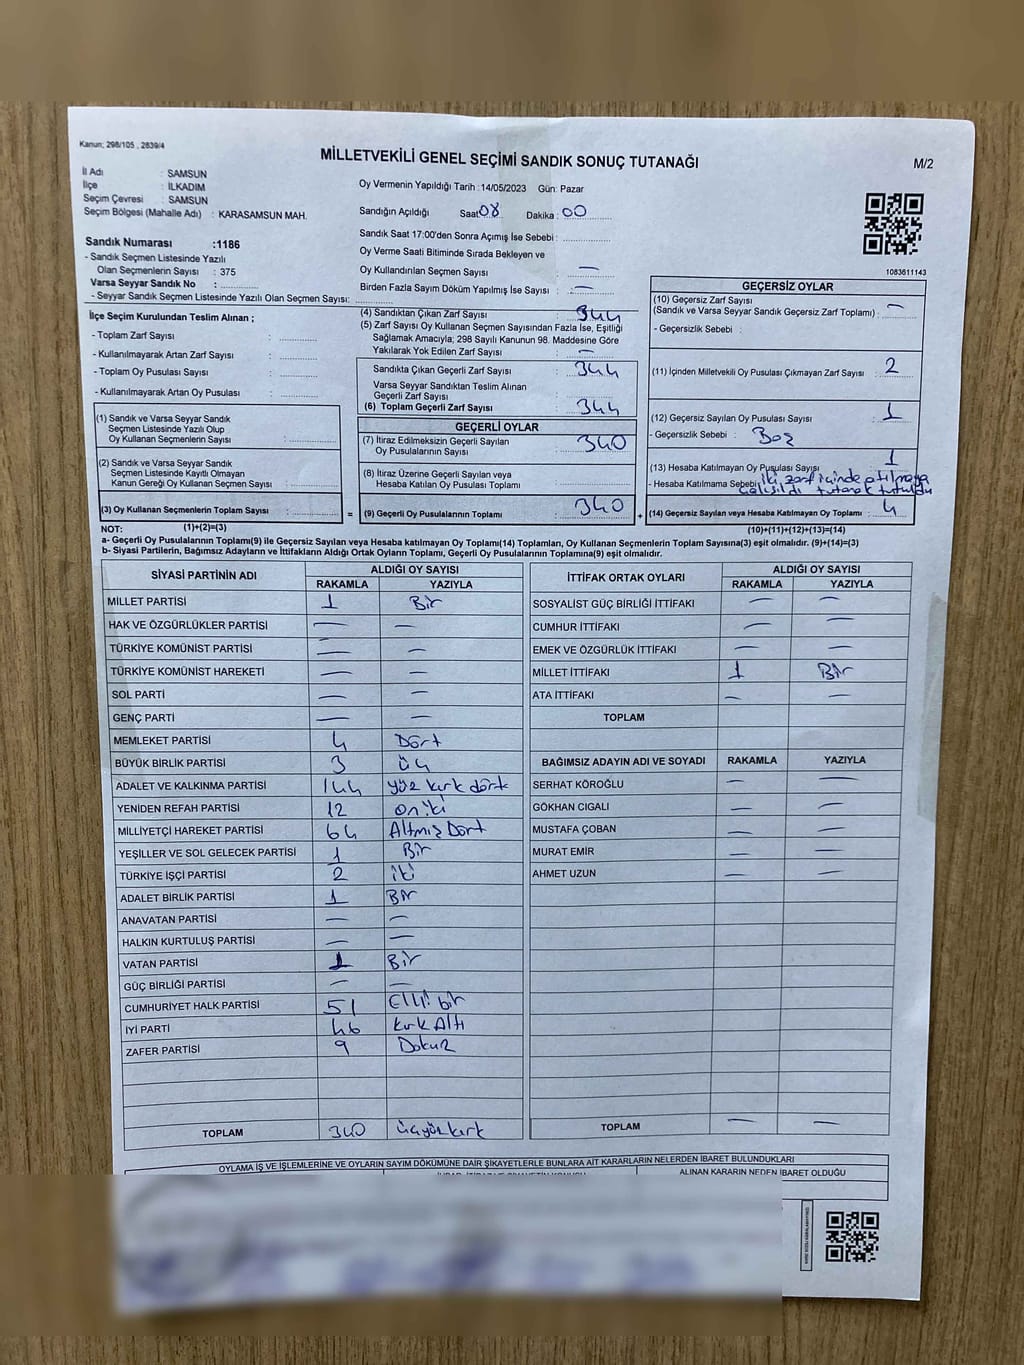 Kanun; 298/105 , 2839/4
MİLLETVEKİLİ GENEL SEÇİMİ SANDIK SONUÇ TUTANAĞI
M/2
İl Adı : SAMSUN
İlçe : İLKADIM
Seçim Çevresi : SAMSUN
Seçim Bölgesi (Mahalle Adı) : KARASAMSUN MAH.
Sandık Numarası :1186
- Sandık Seçmen Listesinde Yazılı
Olan Seçmenlerin Sayısı : 375
Varsa Seyyar Sandık No :
- Seyyar Sandık Seçmen Listesinde Yazılı Olan Seçmen Sayısı:
Oy Vermenin Yapıldığı Tarih :14/05/2023 Gün: Pazar
Sandığın Açıldığı Saat 08 Dakika : 00
Sandık Saat 17:00'den Sonra Açımış İse Sebebi :
Oy Verme Saati Bitiminde Sırada Bekleyen ve
Oy Kullandırılan Seçmen Sayısı : —
Birden Fazla Sayım Döküm Yapılmış İse Sayısı : —
1083611143
İlçe Seçim Kurulundan Teslim Alınan ;
- Toplam Zarf Sayısı :
- Kullanılmayarak Artan Zarf Sayısı :
- Toplam Oy Pusulası Sayısı :
- Kullanılmayarak Artan Oy Pusulası :
(1) Sandık ve Varsa Seyyar Sandık
Seçmen Listesinde Yazılı Olup
Oy Kullanan Seçmenlerin Sayısı :
(2) Sandık ve Varsa Seyyar Sandık
Seçmen Listesinde Kayıtlı Olmayan
Kanun Gereği Oy Kullanan Seçmen Sayısı :
(3) Oy Kullanan Seçmenlerin Toplam Sayısı :
(1)+(2)=(3)
(4) Sandıktan Çıkan Zarf Sayısı : 344
(5) Zarf Sayısı Oy Kullanan Seçmen Sayısından Fazla İse, Eşitliği
Sağlamak Amacıyla; 298 Sayılı Kanunun 98. Maddesine Göre
Yakılarak Yok Edilen Zarf Sayısı : —
Sandıkta Çıkan Geçerli Zarf Sayısı : 344
Varsa Seyyar Sandıktan Teslim Alınan
Geçerli Zarf Sayısı :
(6) Toplam Geçerli Zarf Sayısı : 344
GEÇERLİ OYLAR
(7) İtiraz Edilmeksizin Geçerli Sayılan
Oy Pusulalarının Sayısı : 340
(8) İtiraz Üzerine Geçerli Sayılan veya
Hesaba Katılan Oy Pusulası Toplamı :
= (9) Geçerli Oy Pusulalarının Toplamı : 340
GEÇERSİZ OYLAR
(10) Geçersiz Zarf Sayısı
(Sandık ve Varsa Seyyar Sandık Geçersiz Zarf Toplamı) : —
- Geçersizlik Sebebi :
(11) İçinden Milletvekili Oy Pusulası Çıkmayan Zarf Sayısı : 2
(12) Geçersiz Sayılan Oy Pusulası Sayısı : 1
- Geçersizlik Sebebi : Boş
(13) Hesaba Katılmayan Oy Pusulası Sayısı : 1
- Hesaba Katılmama Sebebi: iki zarf içinde atılmaya
çalışıldı tutanak tutuldu
+ (14) Geçersiz Sayılan veya Hesaba Katılmayan Oy Toplamı : 4
(10)+(11)+(12)+(13)=(14)
NOT:
a- Geçerli Oy Pusulalarının Toplamı(9) ile Geçersiz Sayılan veya Hesaba katılmayan Oy Toplamı(14) Toplamları, Oy Kullanan Seçmenlerin Toplam Sayısına(3) eşit olmalıdır. (9)+(14)=(3)
b- Siyasi Partilerin, Bağımsız Adayların ve İttifakların Aldığı Ortak Oyların Toplamı, Geçerli Oy Pusulalarının Toplamına(9) eşit olmalıdır.
SİYASİ PARTİNİN ADI ALDIĞI OY SAYISI
RAKAMLA YAZIYLA
MİLLET PARTİSİ 1 Bir
HAK VE ÖZGÜRLÜKLER PARTİSİ — —
TÜRKİYE KOMÜNİST PARTİSİ — —
TÜRKİYE KOMÜNİST HAREKETİ — —
SOL PARTİ — —
GENÇ PARTİ — —
MEMLEKET PARTİSİ 4 Dört
BÜYÜK BİRLİK PARTİSİ 3 Üç
ADALET VE KALKINMA PARTİSİ 144 yüz kırk dört
YENİDEN REFAH PARTİSİ 12 on iki
MİLLİYETÇİ HAREKET PARTİSİ 64 Altmış Dört
YEŞİLLER VE SOL GELECEK PARTİSİ 1 Bir
TÜRKİYE İŞÇİ PARTİSİ 2 iki
ADALET BİRLİK PARTİSİ 1 Bir
ANAVATAN PARTİSİ — —
HALKIN KURTULUŞ PARTİSİ — —
VATAN PARTİSİ 1 Bir
GÜÇ BİRLİĞİ PARTİSİ — —
CUMHURİYET HALK PARTİSİ 51 Elli bir
İYİ PARTİ 46 Kırk Altı
ZAFER PARTİSİ 9 Dokuz
TOPLAM 340 üçyüzkırk
İTTİFAK ORTAK OYLARI ALDIĞI OY SAYISI
RAKAMLA YAZIYLA
SOSYALİST GÜÇ BİRLİĞİ İTTİFAKI — —
CUMHUR İTTİFAKI — —
EMEK VE ÖZGÜRLÜK İTTİFAKI — —
MİLLET İTTİFAKI 1 Bir
ATA İTTİFAKI — —
TOPLAM
BAĞIMSIZ ADAYIN ADI VE SOYADI RAKAMLA YAZIYLA
SERHAT KÖROĞLU — —
GÖKHAN CIGALI — —
MUSTAFA ÇOBAN — —
MURAT EMİR — —
AHMET UZUN — —
TOPLAM — —
OYLAMA İŞ VE İŞLEMLERİNE VE OYLARIN SAYIM DÖKÜMÜNE DAİR ŞİKAYETLERLE BUNLARA AİT KARARLARIN NELERDEN İBARET BULUNDUKLARI
ALINAN KARARIN NEDEN İBARET OLDUĞU